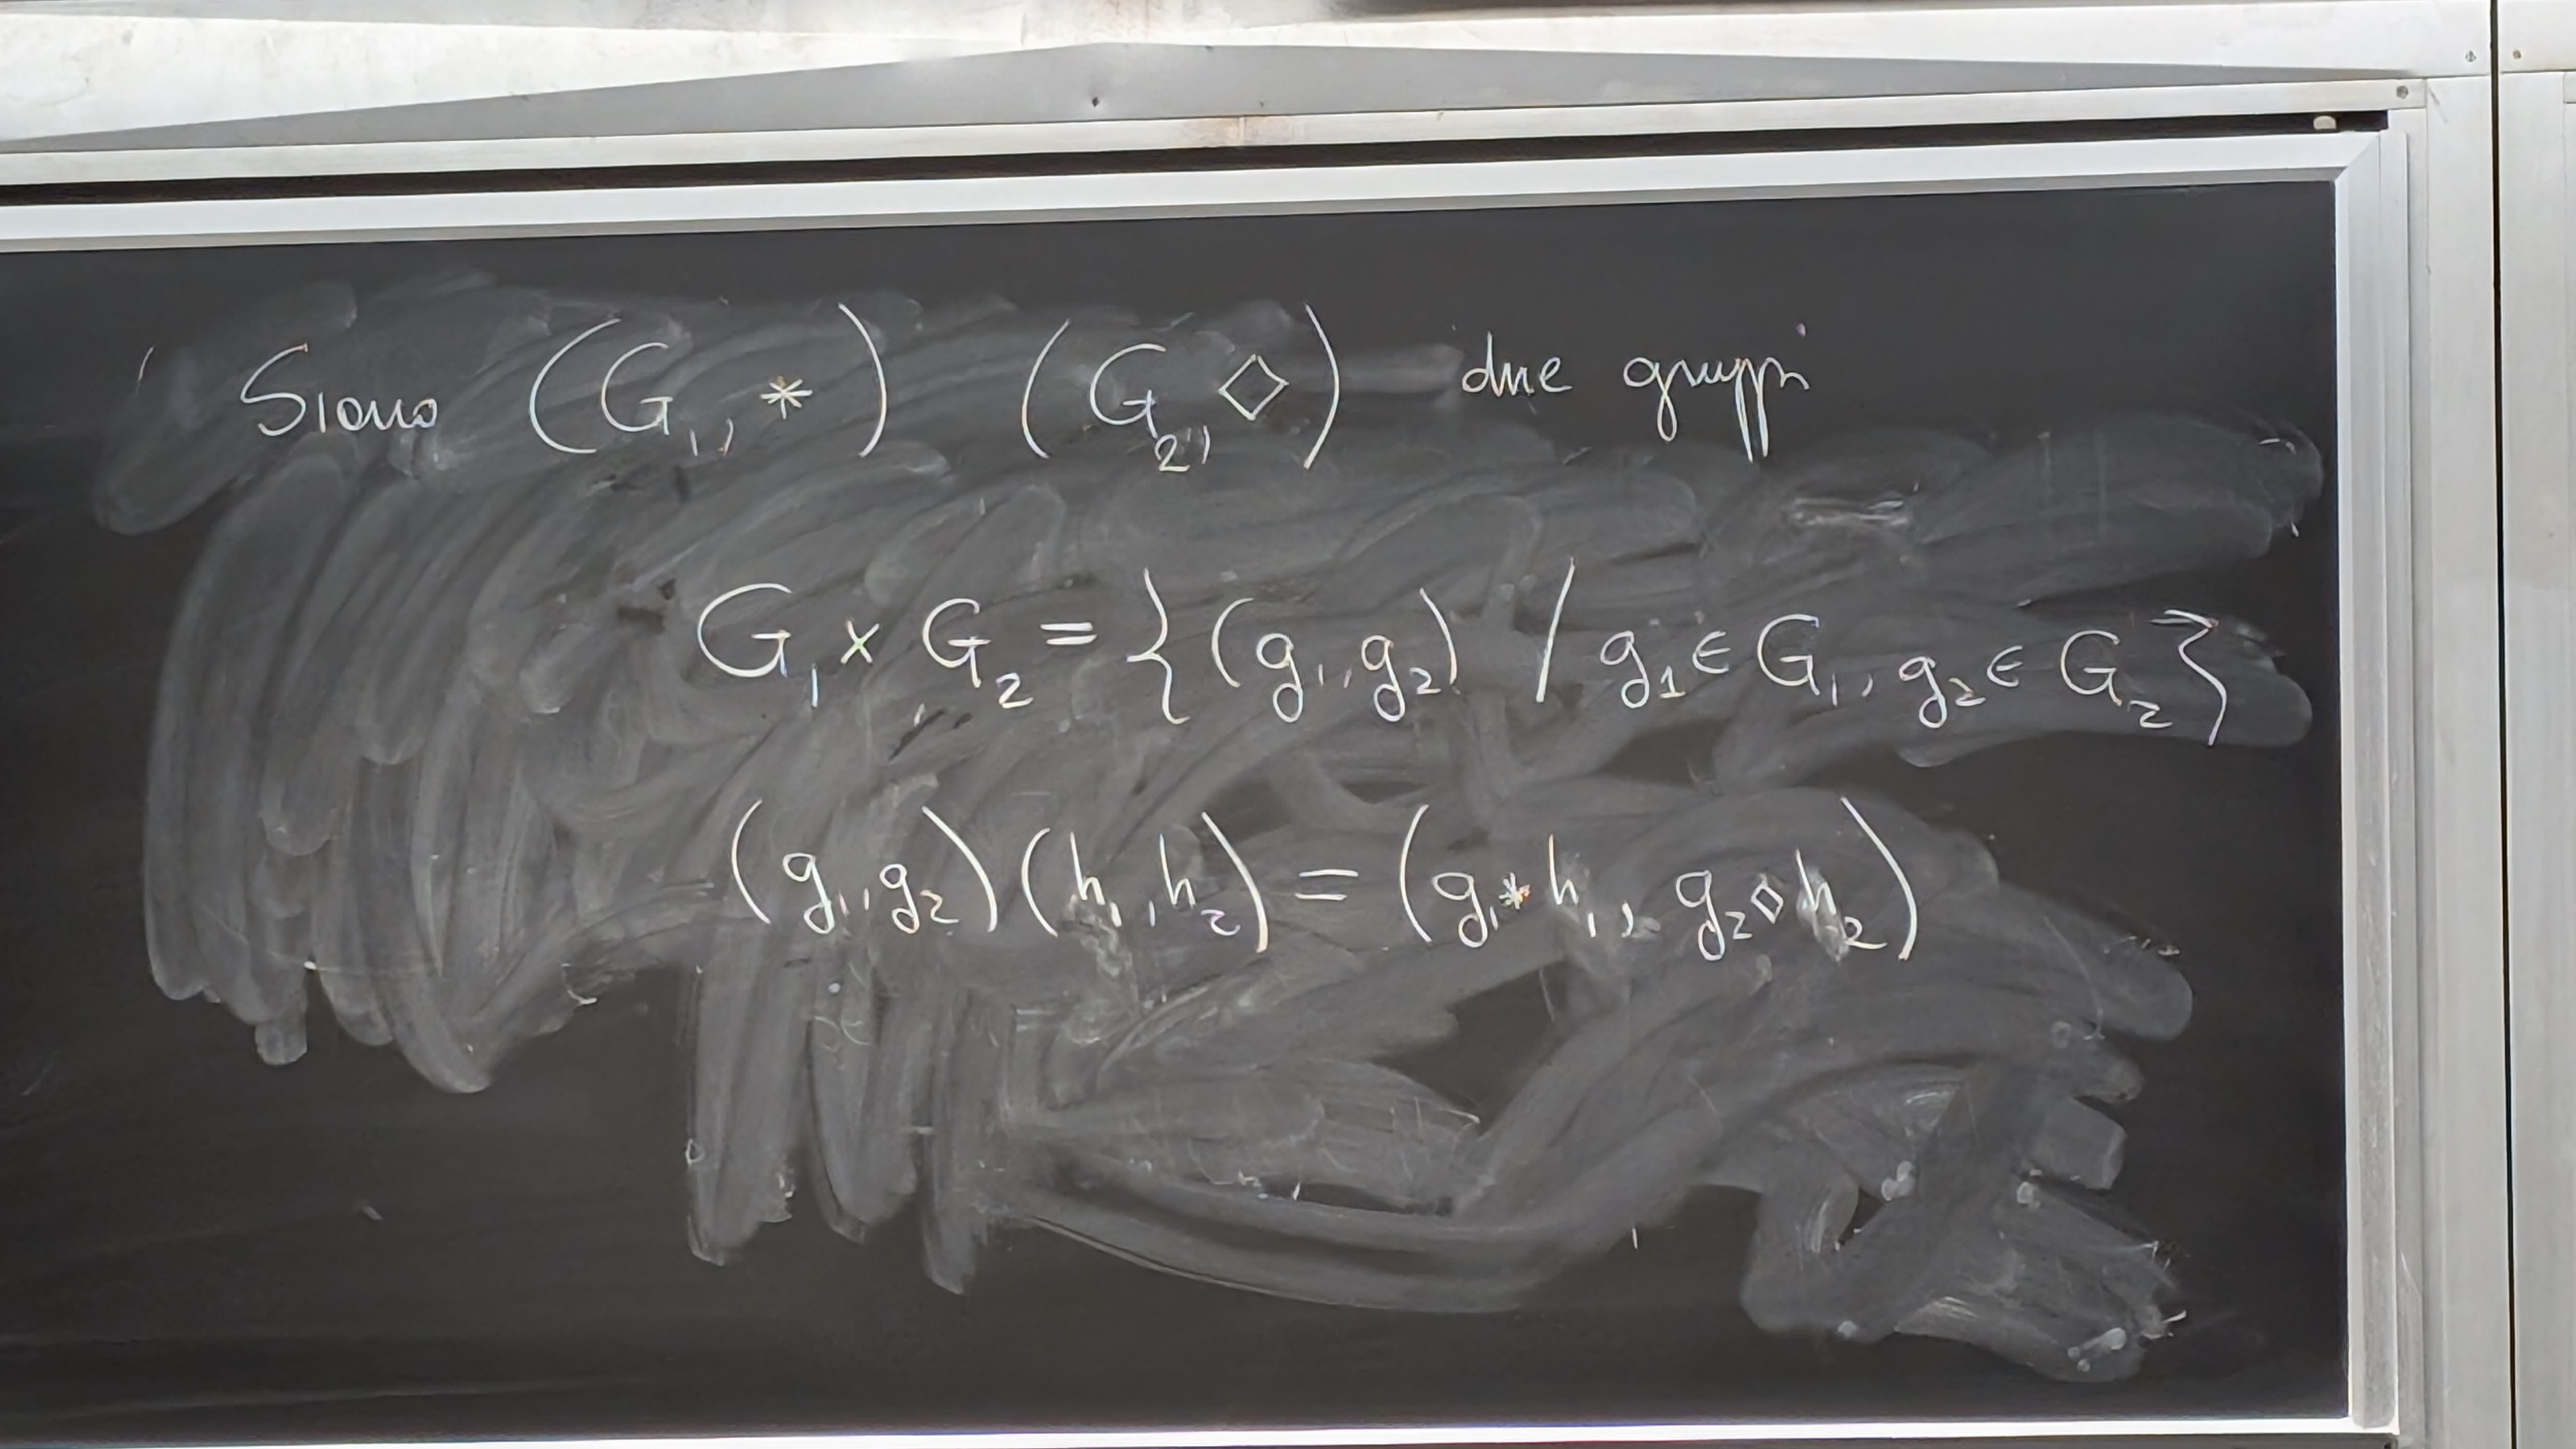 Siano (G₁, *) (G₂, ◇) due gruppi
G₁ × G₂ = {(g₁, g₂) / g₁ ∈ G₁, g₂ ∈ G₂}
(g₁, g₂)(h₁, h₂) = (g₁ * h₁, g₂ ◇ h₂)